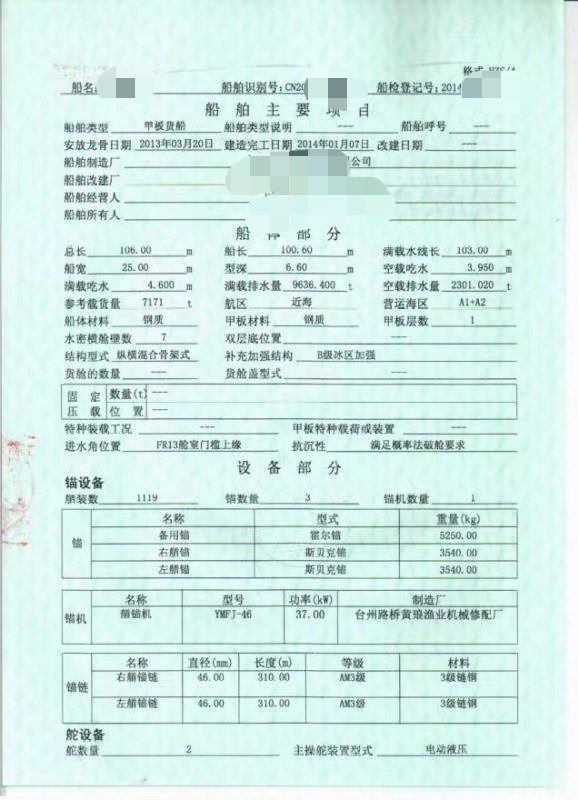 格式
船名: 船舶识别号:CN20 船检登记号:2014
船舶主要项目
船舶类型 甲板货船 船舶类型说明 --- 船舶呼号 ---
安放龙骨日期 2013年03月20日 建造完工日期 2014年01月07日 改建日期 ---
船舶制造厂 公司
船舶改建厂
船舶经营人
船舶所有人
船体部分
总长 106.00 m 船长 100.60 m 满载水线长 103.00 m
船宽 25.00 m 型深 6.60 m 空载吃水 3.950 m
满载吃水 4.600 m 满载排水量 9636.400 t 空载排水量 2301.020 t
参考载货量 7171 t 航区 近海 营运海区 A1+A2
船体材料 钢质 甲板材料 钢质 甲板层数 1
水密横舱壁数 7 双层底位置 ---
结构型式 纵横混合骨架式 补充加强结构 B级冰区加强
货舱的数量 --- 货舱盖型式 ---
固定 数量(t) ---
压载 位置 ---
特种装载工况 --- 甲板特种载荷或装置 ---
进水角位置 FR13舱室门槛上缘 抗沉性 满足概率法破舱要求
设备部分
锚设备
舾装数 1119 锚数量 3 锚机数量 1
锚
名称 型式 重量(kg)
备用锚 霍尔锚 5250.00
右艏锚 斯贝克锚 3540.00
左艏锚 斯贝克锚 3540.00
锚机
名称 型号 功率(kW) 制造厂
艏锚机 YMFJ-46 37.00 台州路桥黄琅渔业机械修配厂
锚链
名称 直径(mm) 长度(m) 等级 材料
右艏锚链 46.00 310.00 AM3级 3级链钢
左艏锚链 46.00 310.00 AM3级 3级链钢
舵设备
舵数量 2 主操舵装置型式 电动液压